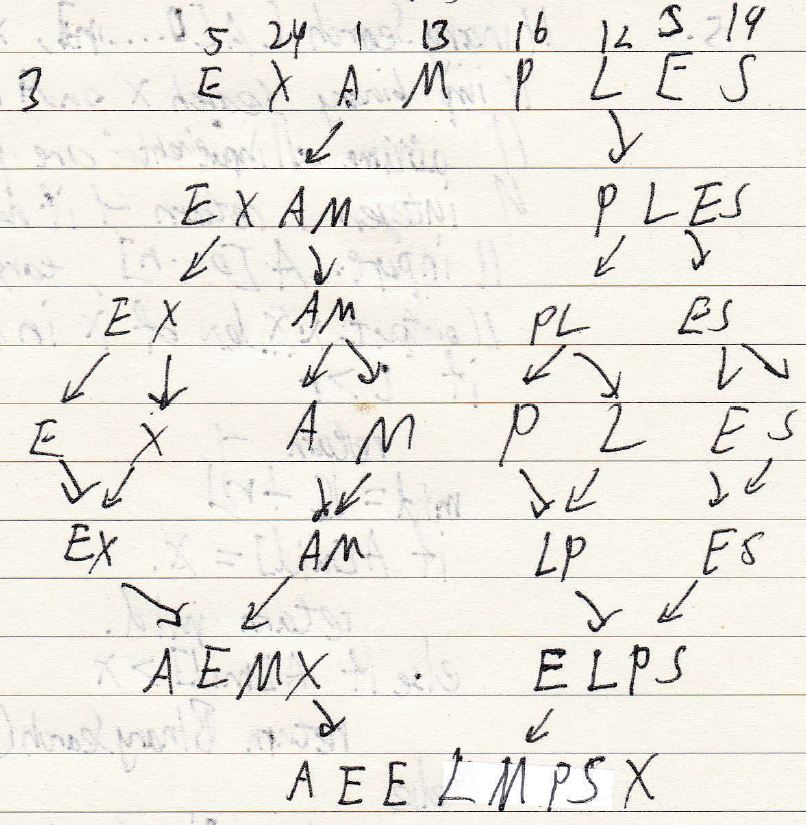 5 24 1 13 16 12 5 19
3 E X A M P L E S
E X A M P L E S
E X A M P L E S
E X A M P L E S
E X A M L P E S
A E M X E L P S
A E E L M P S X